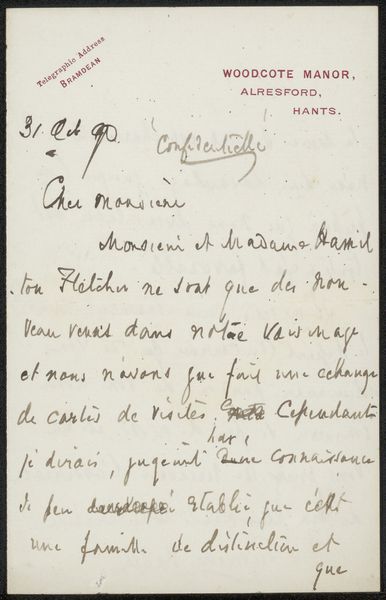 Telegraphic Address
BRAMDEAN
WOODCOTE MANOR,
ALRESFORD,
HANTS.
31 Oct 90
Confidentielle
Cher Monsieur
Monsieur et Madame Hamil
ton Fletcher ne sont que des nou-
veau venus dans notre voisinage
et nous n'avons que fait une echange
de cartes de visites Cependant
je dirais, jugeant par, une connaissance
si peu etablie, que c'est
une famille de distinction et
que